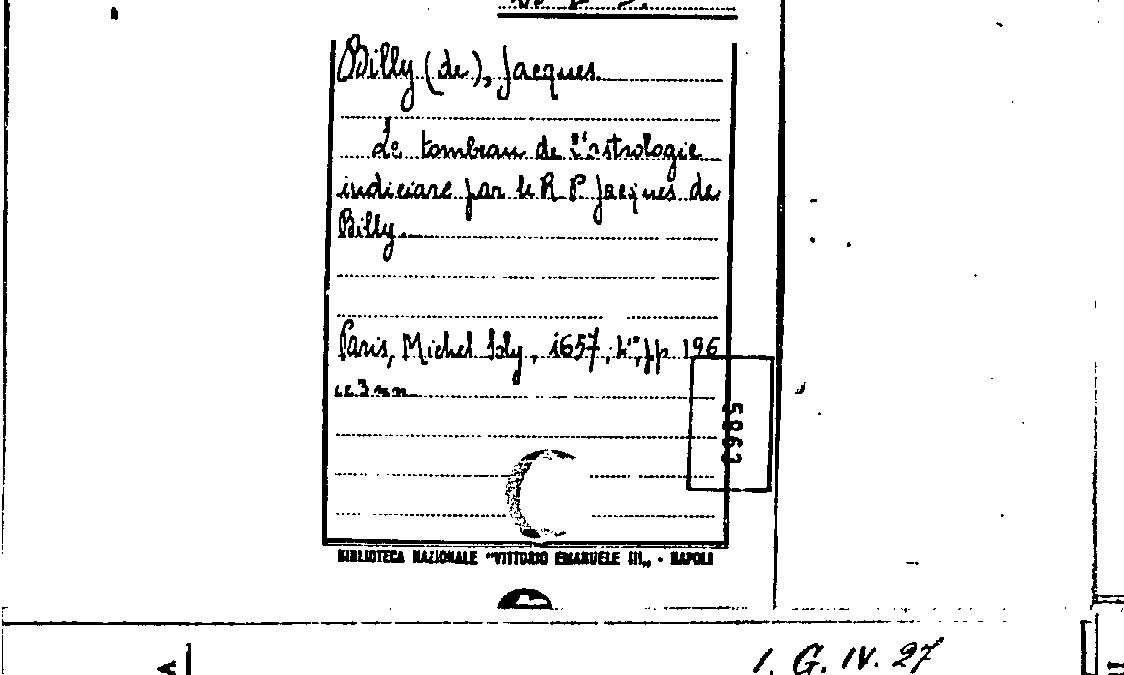 Billy (de), Jacques.
Le tombeau de l'astrologie
indiciare par le R P Jacques de
Billy.
Paris, Michel Soly, 1657, 4°, pp 196
cc 3 nn.
5863
BIBLIOTECA NAZIONALE "VITTORIO EMANUELE III„ - NAPOLI
A
1. G. IV. 27